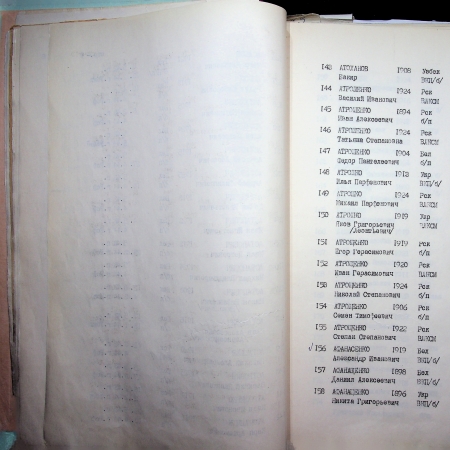 143 АТОХАНОВ 1908 Узбек
Бакир ВКП/б/
144 АТРОЩЕНКО 1924 Рск
Василий Иванович ВЛКСМ
145 АТРОЩЕНКО 1894 Рск
Иван Алексеевич б/п
146 АТРОЩЕНКО 1924 Рск
Татьяна Степановна ВЛКСМ
147 АТРОЩЕНКО 1904 Бел
Федор Пантелеевич б/п
148 АТРОШКО 1912 Укр
Илья Парфенович ВКП/б/
149 АТРОШКО 1924 Рск
Михаил Парфенович ВЛКСМ
150 АТРОШКО 1919 Укр
Яков Григорьевич ВЛКСМ
/Леонтьевич/
151 АТРОЩЕНКО 1919 Рск
Егор Герасимович б/п
152 АТРОЩЕНКО 1920 Рск
Иван Герасимович ВЛКСМ
153 АТРОЩЕНКО 1924 Рск
Николай Степанович б/п
154 АТРОЩЕНКО 1906 Рск
Семен Тимофеевич б/п
155 АТРОЩЕНКО 1922 Рск
Степан Степанович ВЛКСМ
√ 156 АФАНАСЕНКО 1919 Бел
Александр Иванович ВКП/б/
157 АФАНАЩЕНКО 1898 Бел
Даниил Алексеевич ВКП/б/
158 АФАНАСЕНКО 1896 Укр
Никита Григорьевич ВКП/б/